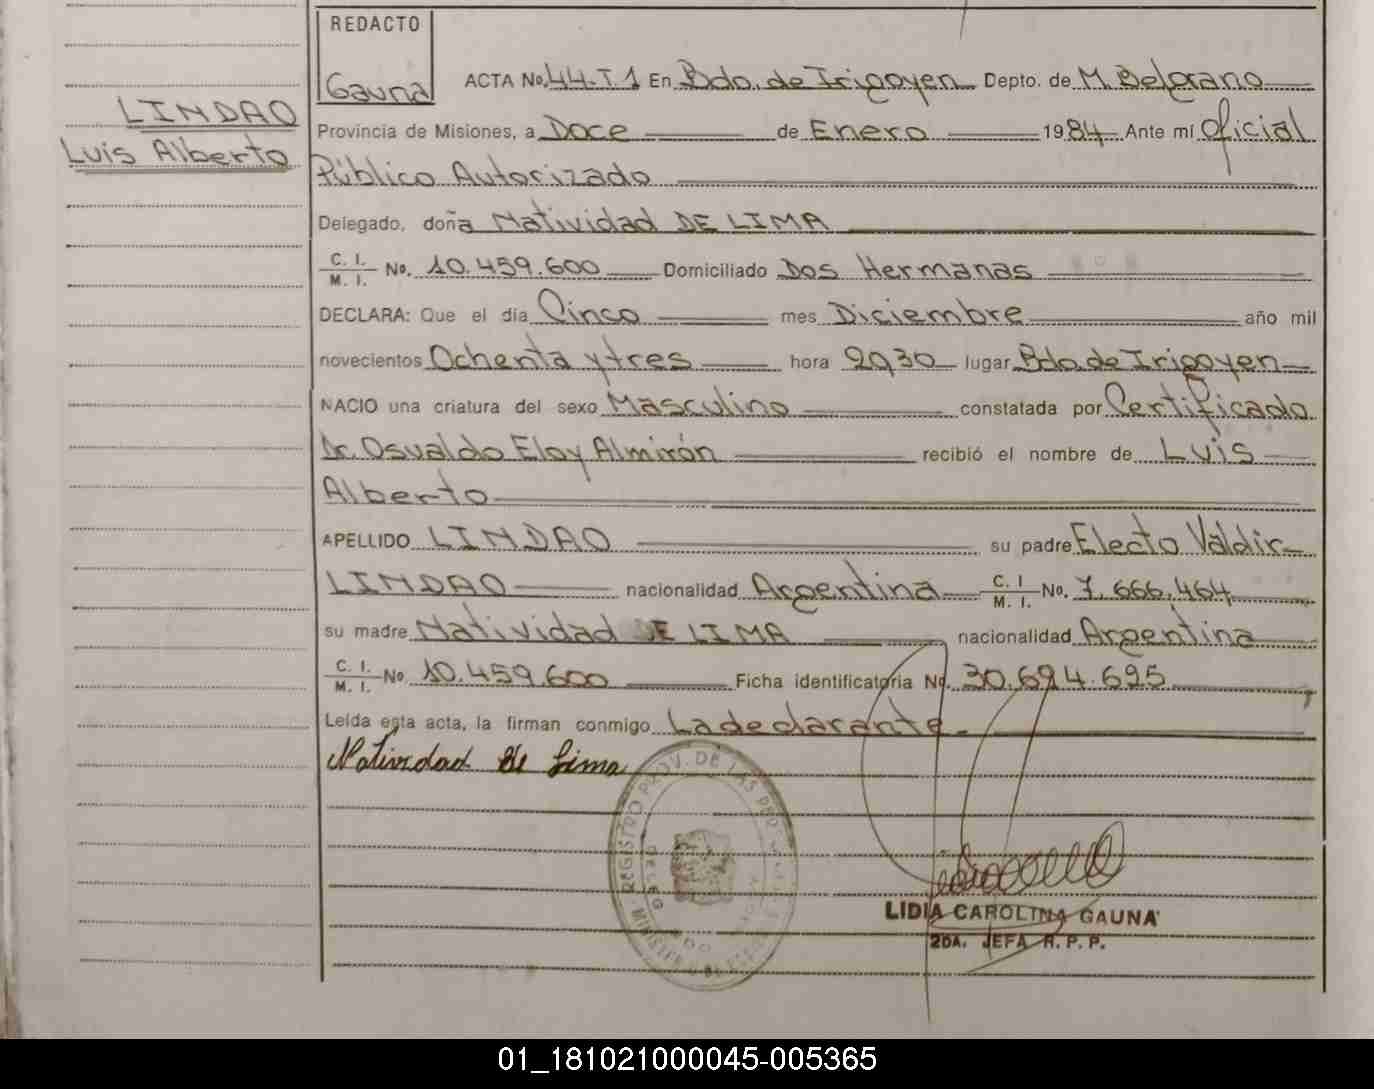 REDACTO
Gauna
LINDAO
Luis Alberto
ACTA No. 44-T.1 En Bdo. de Irigoyen Depto. de M. Belgrano
Provincia de Misiones, a Doce de Enero 1984 Ante mí Oficial
Público Autorizado
Delegado, doña Natividad DE LIMA
C. I. / M. I. No. 10.459.600 Domiciliado Dos Hermanas
DECLARA: Que el día Cinco mes Diciembre año mil
novecientos Ochenta y tres hora 2030 lugar Bdo. de Irigoyen
NACIO una criatura del sexo Masculino constatada por Certificado
Dr. Osvaldo Eloy Almirón recibió el nombre de Luis
Alberto
APELLIDO LINDAO su padre Electo Valdir
LINDAO nacionalidad Argentina C. I / M. I. No. 7.666.464
su madre Natividad DE LIMA nacionalidad Argentina
C. I. / M. I. No 10.459.600 Ficha identificatoria No. 30.694.695
Leída esta acta, la firman conmigo La declarante.
Natividad de Lima
REGISTRO PROV. DE LAS
LIDIA CAROLINA GAUNA
2DA. JEFA R. P. P.
01_181021000045-005365